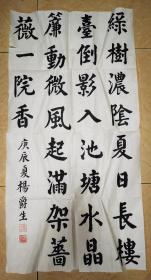 綠樹濃陰夏日長樓
臺倒影入池塘水晶
簾動微風起滿架薔
薇一院香
庚辰夏楊爵生